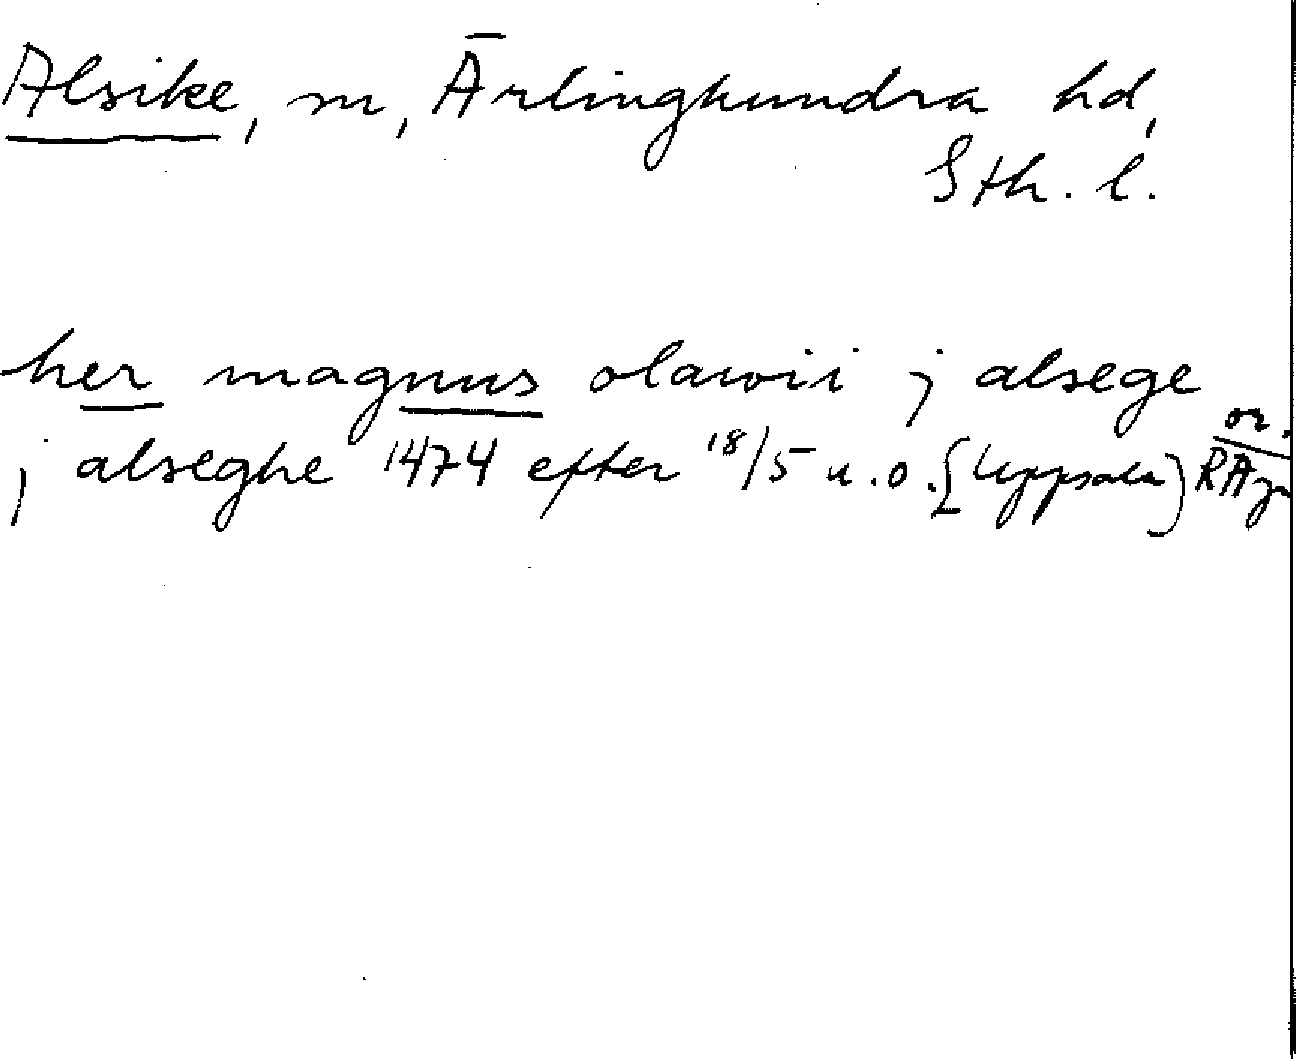 Alsike, sn, Ärlinghundra hd,
Sth. l.
her magnus olawii j alsege
j alseghe 1474 efter 18/5 u.o. (Uppsala) or. RAp